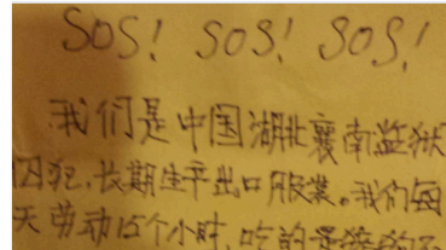 SOS! SOS! SOS!
我们是中国湖北襄南监狱
囚犯,长期生产出口服装。我们每
天劳动15个小时,吃的是